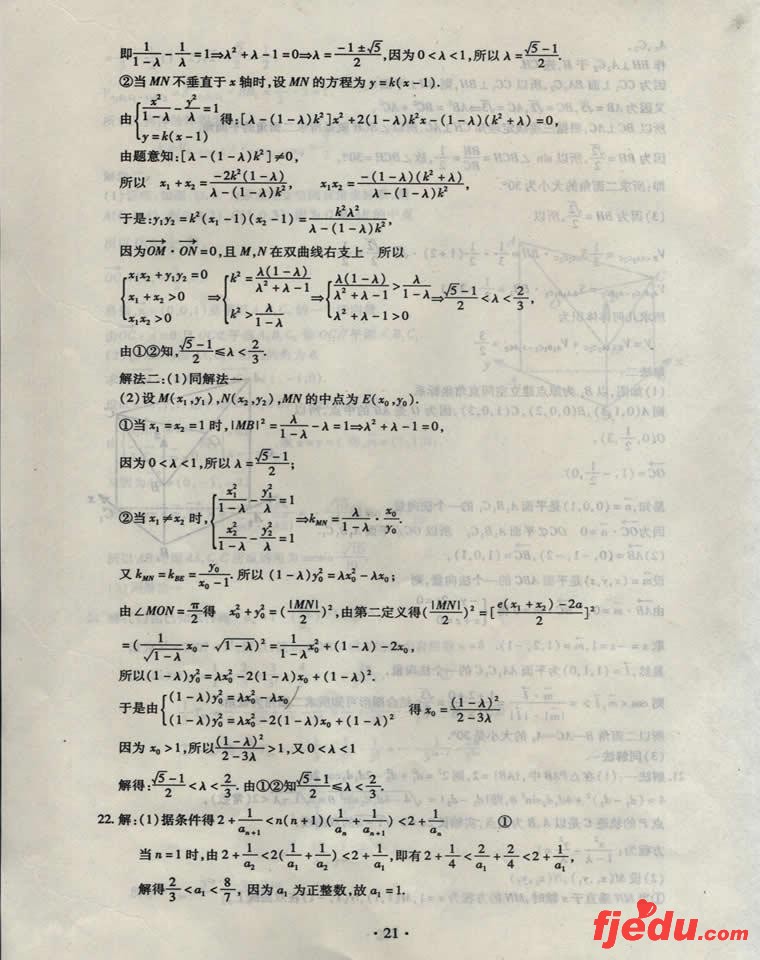 即 1/(1-λ) - 1/λ = 1⇒λ²+λ-1=0⇒λ=(-1±√5)/2,因为0<λ<1,所以λ=(√5-1)/2.
②当MN不垂直于x轴时,设MN的方程为y=k(x-1).
由{x²/(1-λ) - y²/λ = 1, y=k(x-1) 得:[λ-(1-λ)k²]x²+2(1-λ)k²x-(1-λ)(k²+λ)=0,
由题意知:[λ-(1-λ)k²]≠0,
所以 x₁+x₂=-2k²(1-λ)/(λ-(1-λ)k²), x₁x₂=-(1-λ)(k²+λ)/(λ-(1-λ)k²),
于是:y₁y₂=k²(x₁-1)(x₂-1)=k²λ²/(λ-(1-λ)k²),
因为OM→·ON→=0,且M,N在双曲线右支上 所以
{x₁x₂+y₁y₂=0, x₁+x₂>0, x₁x₂>0 ⇒{k²=λ(1-λ)/(λ²+λ-1), k²>λ/(1-λ) ⇒{λ(1-λ)/(λ²+λ-1)>λ/(1-λ), λ²+λ-1>0 ⇒(√5-1)/2<λ<2/3,
由①②知,(√5-1)/2≤λ<2/3.
解法二:(1)同解法一
(2)设M(x₁,y₁),N(x₂,y₂),MN的中点为E(x₀,y₀).
①当x₁=x₂=1时,|MB|²=λ/(1-λ)-λ=1⇒λ²+λ-1=0,
因为0<λ<1,所以λ=(√5-1)/2;
②当x₁≠x₂时,{x₁²/(1-λ) - y₁²/λ = 1, x₂²/(1-λ) - y₂²/λ = 1 ⇒k_MN=λ/(1-λ)·x₀/y₀.
又k_MN=k_BE=y₀/(x₀-1).所以(1-λ)y₀²=λx₀²-λx₀;
由∠MON=π/2得 x₀²+y₀²=(|MN|/2)²,由第二定义得(|MN|/2)²=[(e(x₁+x₂)-2a)/2]²
=(1/√(1-λ) x₀-√(1-λ))²=1/(1-λ) x₀²+(1-λ)-2x₀,
所以(1-λ)y₀²=λx₀²-2(1-λ)x₀+(1-λ)².
于是由{(1-λ)y₀²=λx₀²-λx₀, (1-λ)y₀²=λx₀²-2(1-λ)x₀+(1-λ)² 得x₀=(1-λ)²/(2-3λ)
因为x₀>1,所以(1-λ)²/(2-3λ)>1,又0<λ<1
解得:(√5-1)/2<λ<2/3.由①②知(√5-1)/2≤λ<2/3.
22.解:(1)据条件得2+1/aₙ₊₁<n(n+1)(1/aₙ+1/aₙ₊₁)<2+1/aₙ ①
当n=1时,由2+1/a₂<2(1/a₁+1/a₂)<2+1/a₁,即有2+1/4<2/a₁+2/4<2+1/a₁,
解得2/3<a₁<8/7,因为a₁为正整数,故a₁=1.
·21·
fjedu.com